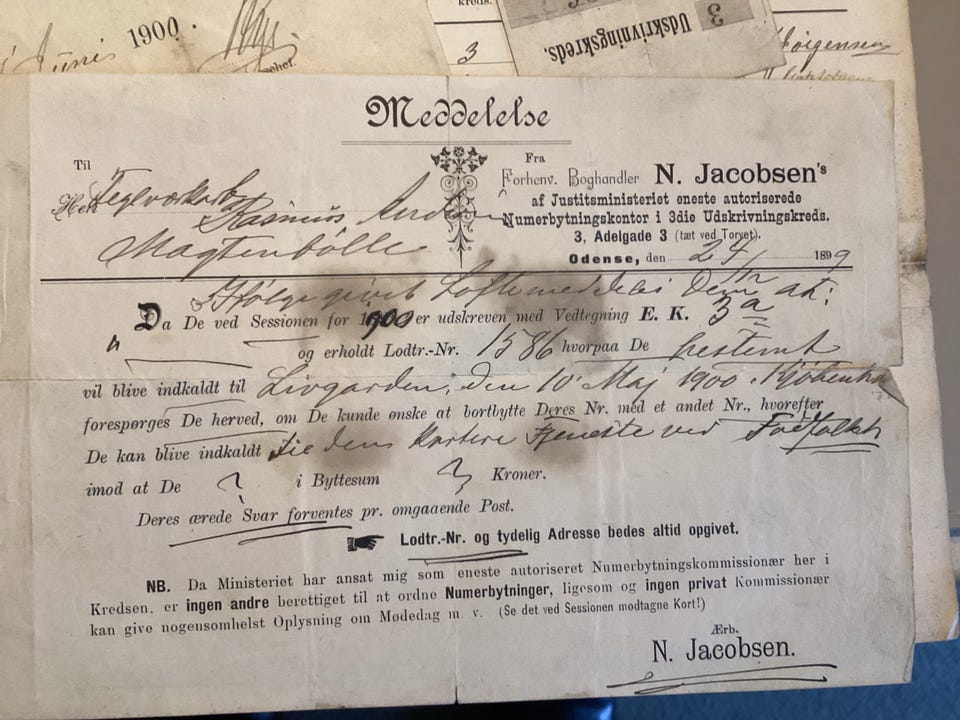 Juni 1900.
3
3
Udskrivningskreds.
Jörgensen
Meddelelse
Til
Herr Teglværksb
Rasmus Andersen
Magtenbölle
Fra
Forhenv. Boghandler N. Jacobsen's
af Justitsministeriet eneste autoriserede
Numerbytningskontor i 3die Udskrivningskreds.
3, Adelgade 3 (tæt ved Torvet).
Odense, den 24/12 1899
Ifølge givet Löfte meddeles Dem at:
Da De ved Sessionen for 1900 er udskreven med Vedtegning E. K. 3a
" og erholdt Lodtr.-Nr. 1586 hvorpaa De bestemt
vil blive indkaldt til Livgarden, den 10' Maj 1900. Kjöbenha
forespørges De herved, om De kunde ønske at bortbytte Deres Nr. med et andet Nr., hvorefter
De kan blive indkaldt til dens kortere Tjeneste ved Fodfolket
imod at De ? i Byttesum ? Kroner.
Deres ærede Svar forventes pr. omgaaende Post.
Lodtr.-Nr. og tydelig Adresse bedes altid opgivet.
NB. Da Ministeriet har ansat mig som eneste autoriseret Numerbytningskommissionær her i
Kredsen, er ingen andre berettiget til at ordne Numerbytninger, ligesom og ingen privat Kommissionær
kan give nogensomhelst Oplysning om Mødedag m. v. (Se det ved Sessionen modtagne Kort!)
Ærb.
N. Jacobsen.